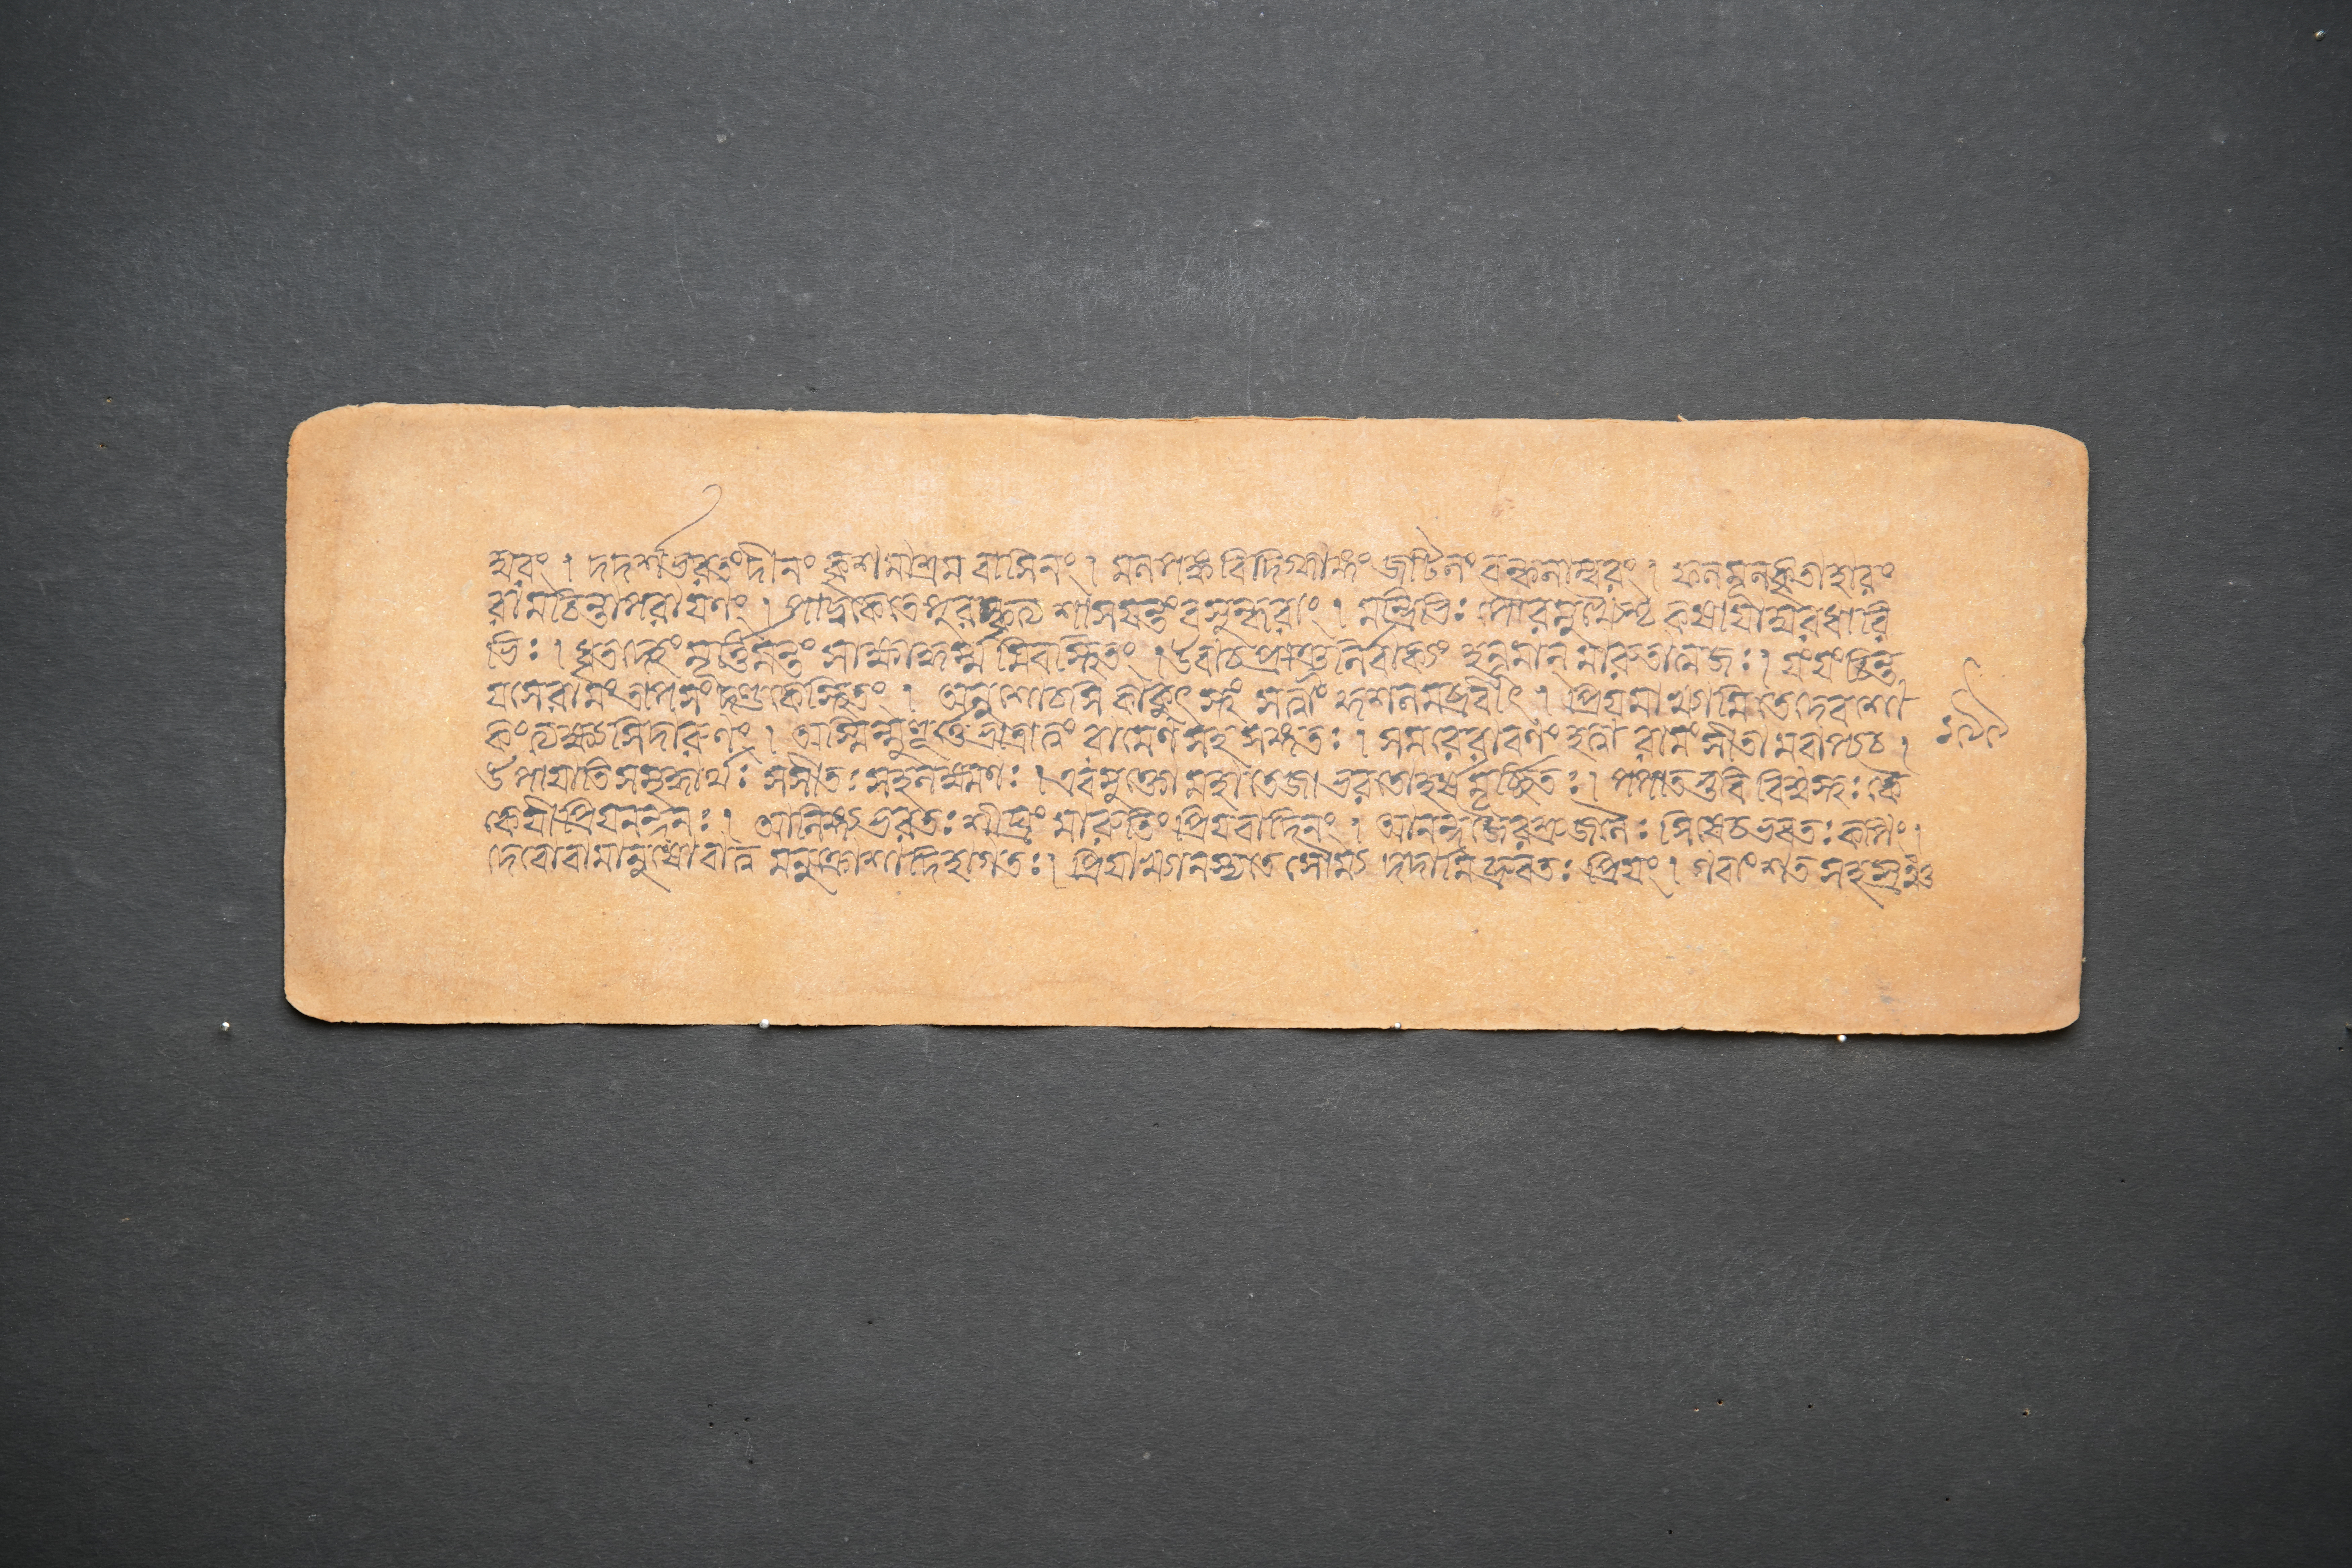 ম্বরং। দদর্শভরতংদীনং কৃশমাশ্রম বাসিনং। মলপঙ্কবিদিগ্ধাঙ্গং জটিলং বল্কলাম্বরং। ফলমূলকৃতাহারং
রামচিন্তাপরাযণং। পাদুকেতেপুরস্কৃত্য শাসযন্তংবসুন্ধরাং। মন্ত্রিভিঃ পৌরমুখ্যৈশ্চ কষাযাম্বরধারি
ভিঃ। বৃতদেহং মূর্ত্তিমন্তং সাক্ষাদ্ধর্ম্মমিবস্থিতং। উবাচপ্রাঞ্জলির্বাক্যং হনূমান মারুতাত্মজঃ। যংত্বংচিন্ত
যসেরামং তাপসংদণ্ডকেস্থিতং। অনুশোচসি কাকুৎস্থং সত্বাং কুশলমব্রবীৎ। প্রিযমাখ্যামি তেদেবশো
কংত্যক্ষ্যসিদারুণং। অস্মিন্মুহূর্ত্তেভ্রাত্রাত্বং রামেণসহ সঙ্গতঃ। সমরেরাবণং হত্বা রামঃ সীতামবাপ্যচ।
উপাযাতিসমৃদ্ধার্থঃ সসীতঃ সহলক্ষ্মণঃ। এবমুক্তোমহাতেজা ভরতোহর্ষমূর্চ্ছিতঃ। পপাতভুবি বিস্বস্থঃ কৈ
কেযীপ্রিযনন্দনঃ। আলিঙ্গ্যভরতঃ শীঘ্রং মারুতিং প্রিযবাদিনং। আনন্দজৈরশ্রুজলৈঃ সিষেচভরতঃ কপিং।
দেবোবামানুষোবাত্ব মনুক্রোশাদিহাগতঃ। প্রিযাখ্যানস্যতে সৌম্য দদামিব্রুবতঃ প্রিযং। গবাংশত সহস্রঞ্চ